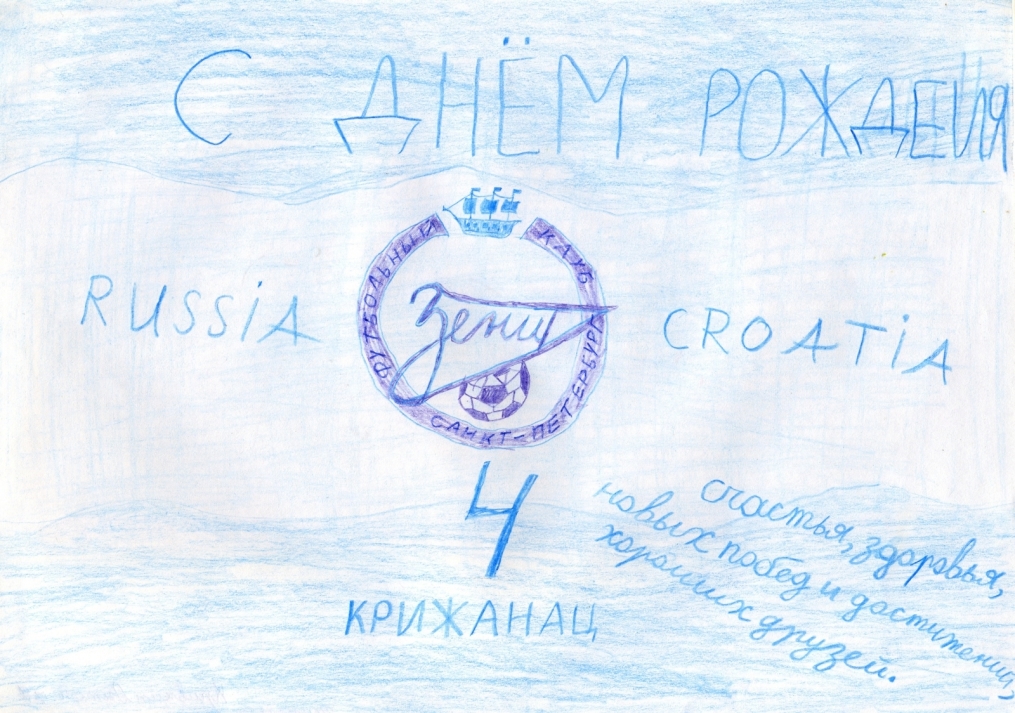 С ДНЁМ РОЖДЕНИЯ
ФУТБОЛЬНЫЙ КЛУБ
RUSSIA
Зенит
CROATIA
САНКТ-ПЕТЕРБУРГ
4
КРИЖАНАЦ
счастья, здоровья,
новых побед и достижений,
хороших друзей.